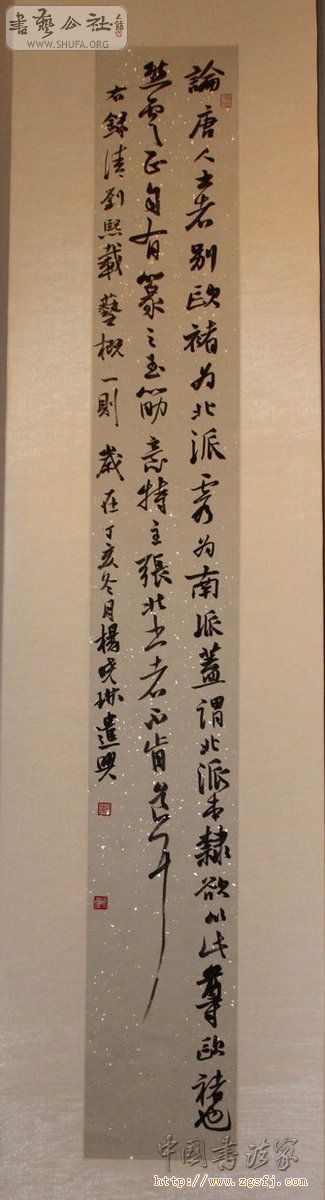 書藝公社
WWW.SHUFA.ORG
論唐人書者別歐褚為北派虞為南派蓋謂北派本隸欲以此尊歐褚也
然虞正自有篆之玉筯意特主張北書者不肯道耳
右錄清劉熙載藝概一則 歲在丁亥冬月楊曉琳遣興
中國書法家
http://www.zgsfj.com